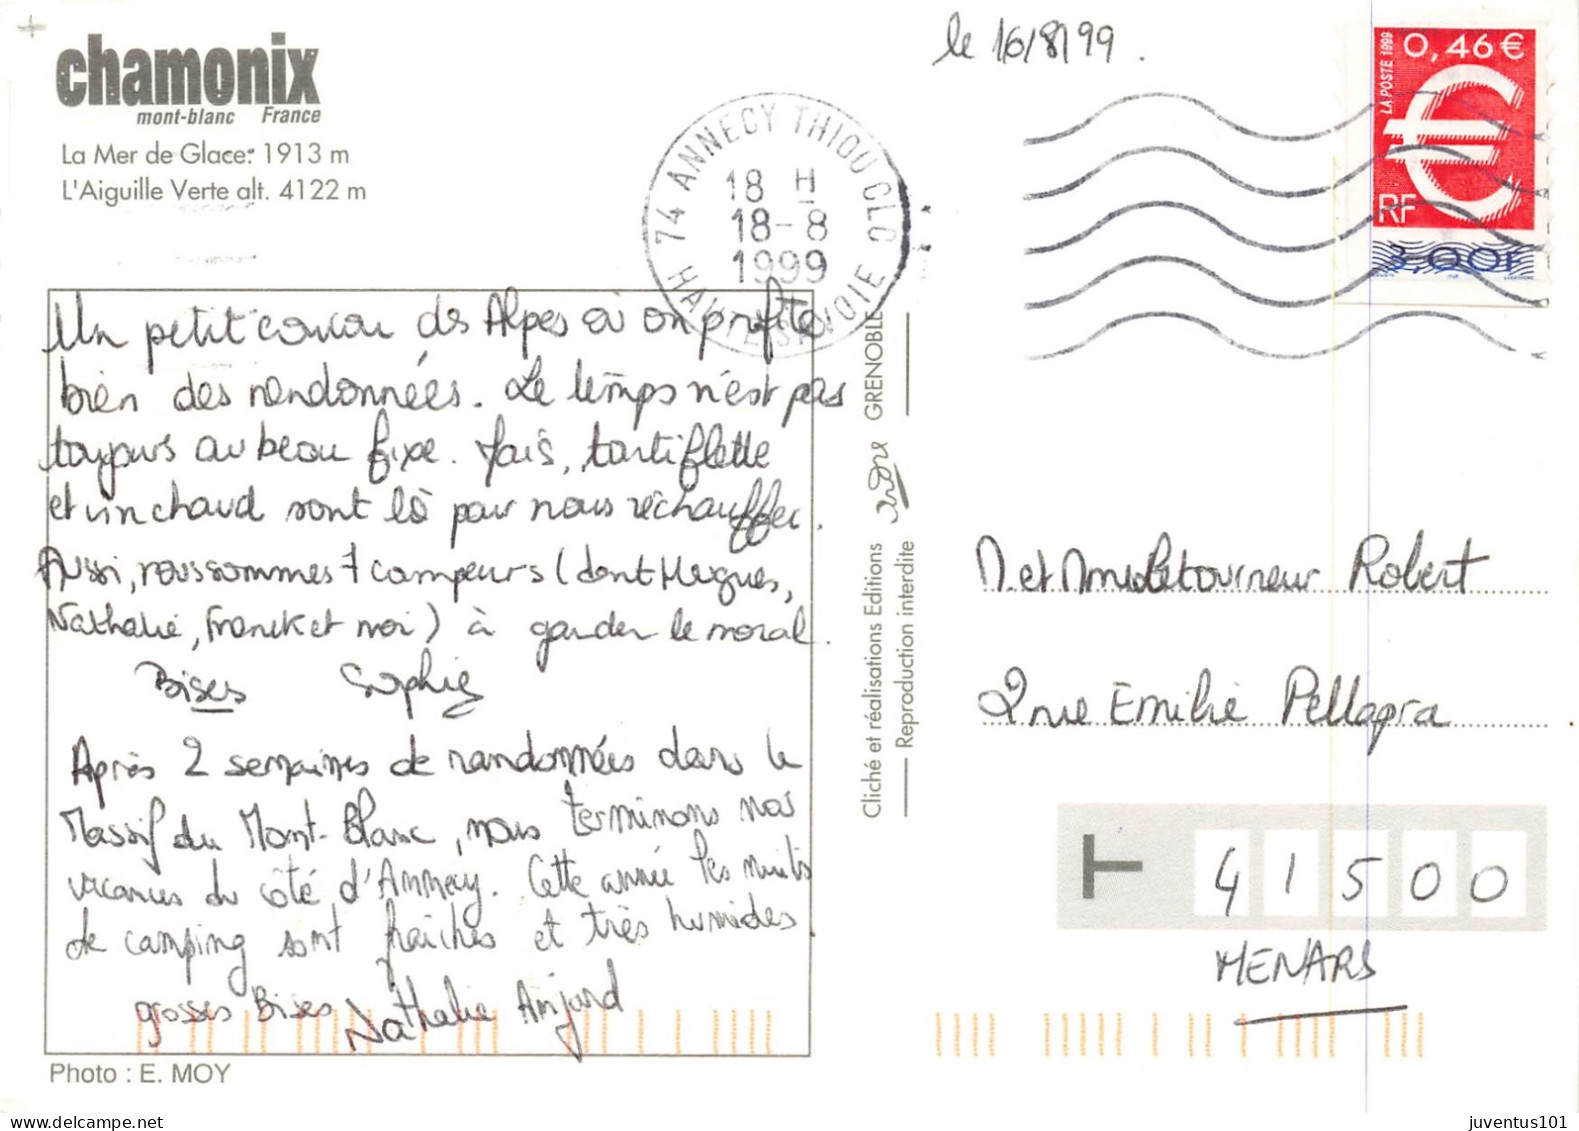 chamonix
mont-blanc France
La Mer de Glace: 1913 m
L'Aiguille Verte alt. 4122 m
le 16/8/99.
0,46 €
LA POSTE 1999
RF
3,00F
74 ANNECY THIOU CLC
18 H
18-8
1999
HAUTE SAVOIE
Un petit coucou des Alpes où on profite
bien des randonnées. Le temps n'est pas
toujours au beau fixe. Mais, tartiflette
et vin chaud sont là pour nous réchauffer.
Aussi, nous sommes 7 campeurs (dont Hugues,
Nathalie, Franck et moi) à garder le moral.
Bises Sophie
Après 2 semaines de randonnées dans le
Massif du Mont-Blanc, nous terminons nos
vacances du côté d'Annecy. Cette année les nuits
de camping sont fraîches et très humides.
grosses Bises Nathalie Anjard
Photo : E. MOY
Cliché et réalisations Editions GRENOBLE
Reproduction interdite
M. et Mme Letourneur Robert
2 rue Emilie Pellapra
41500
MENARS
juventus101